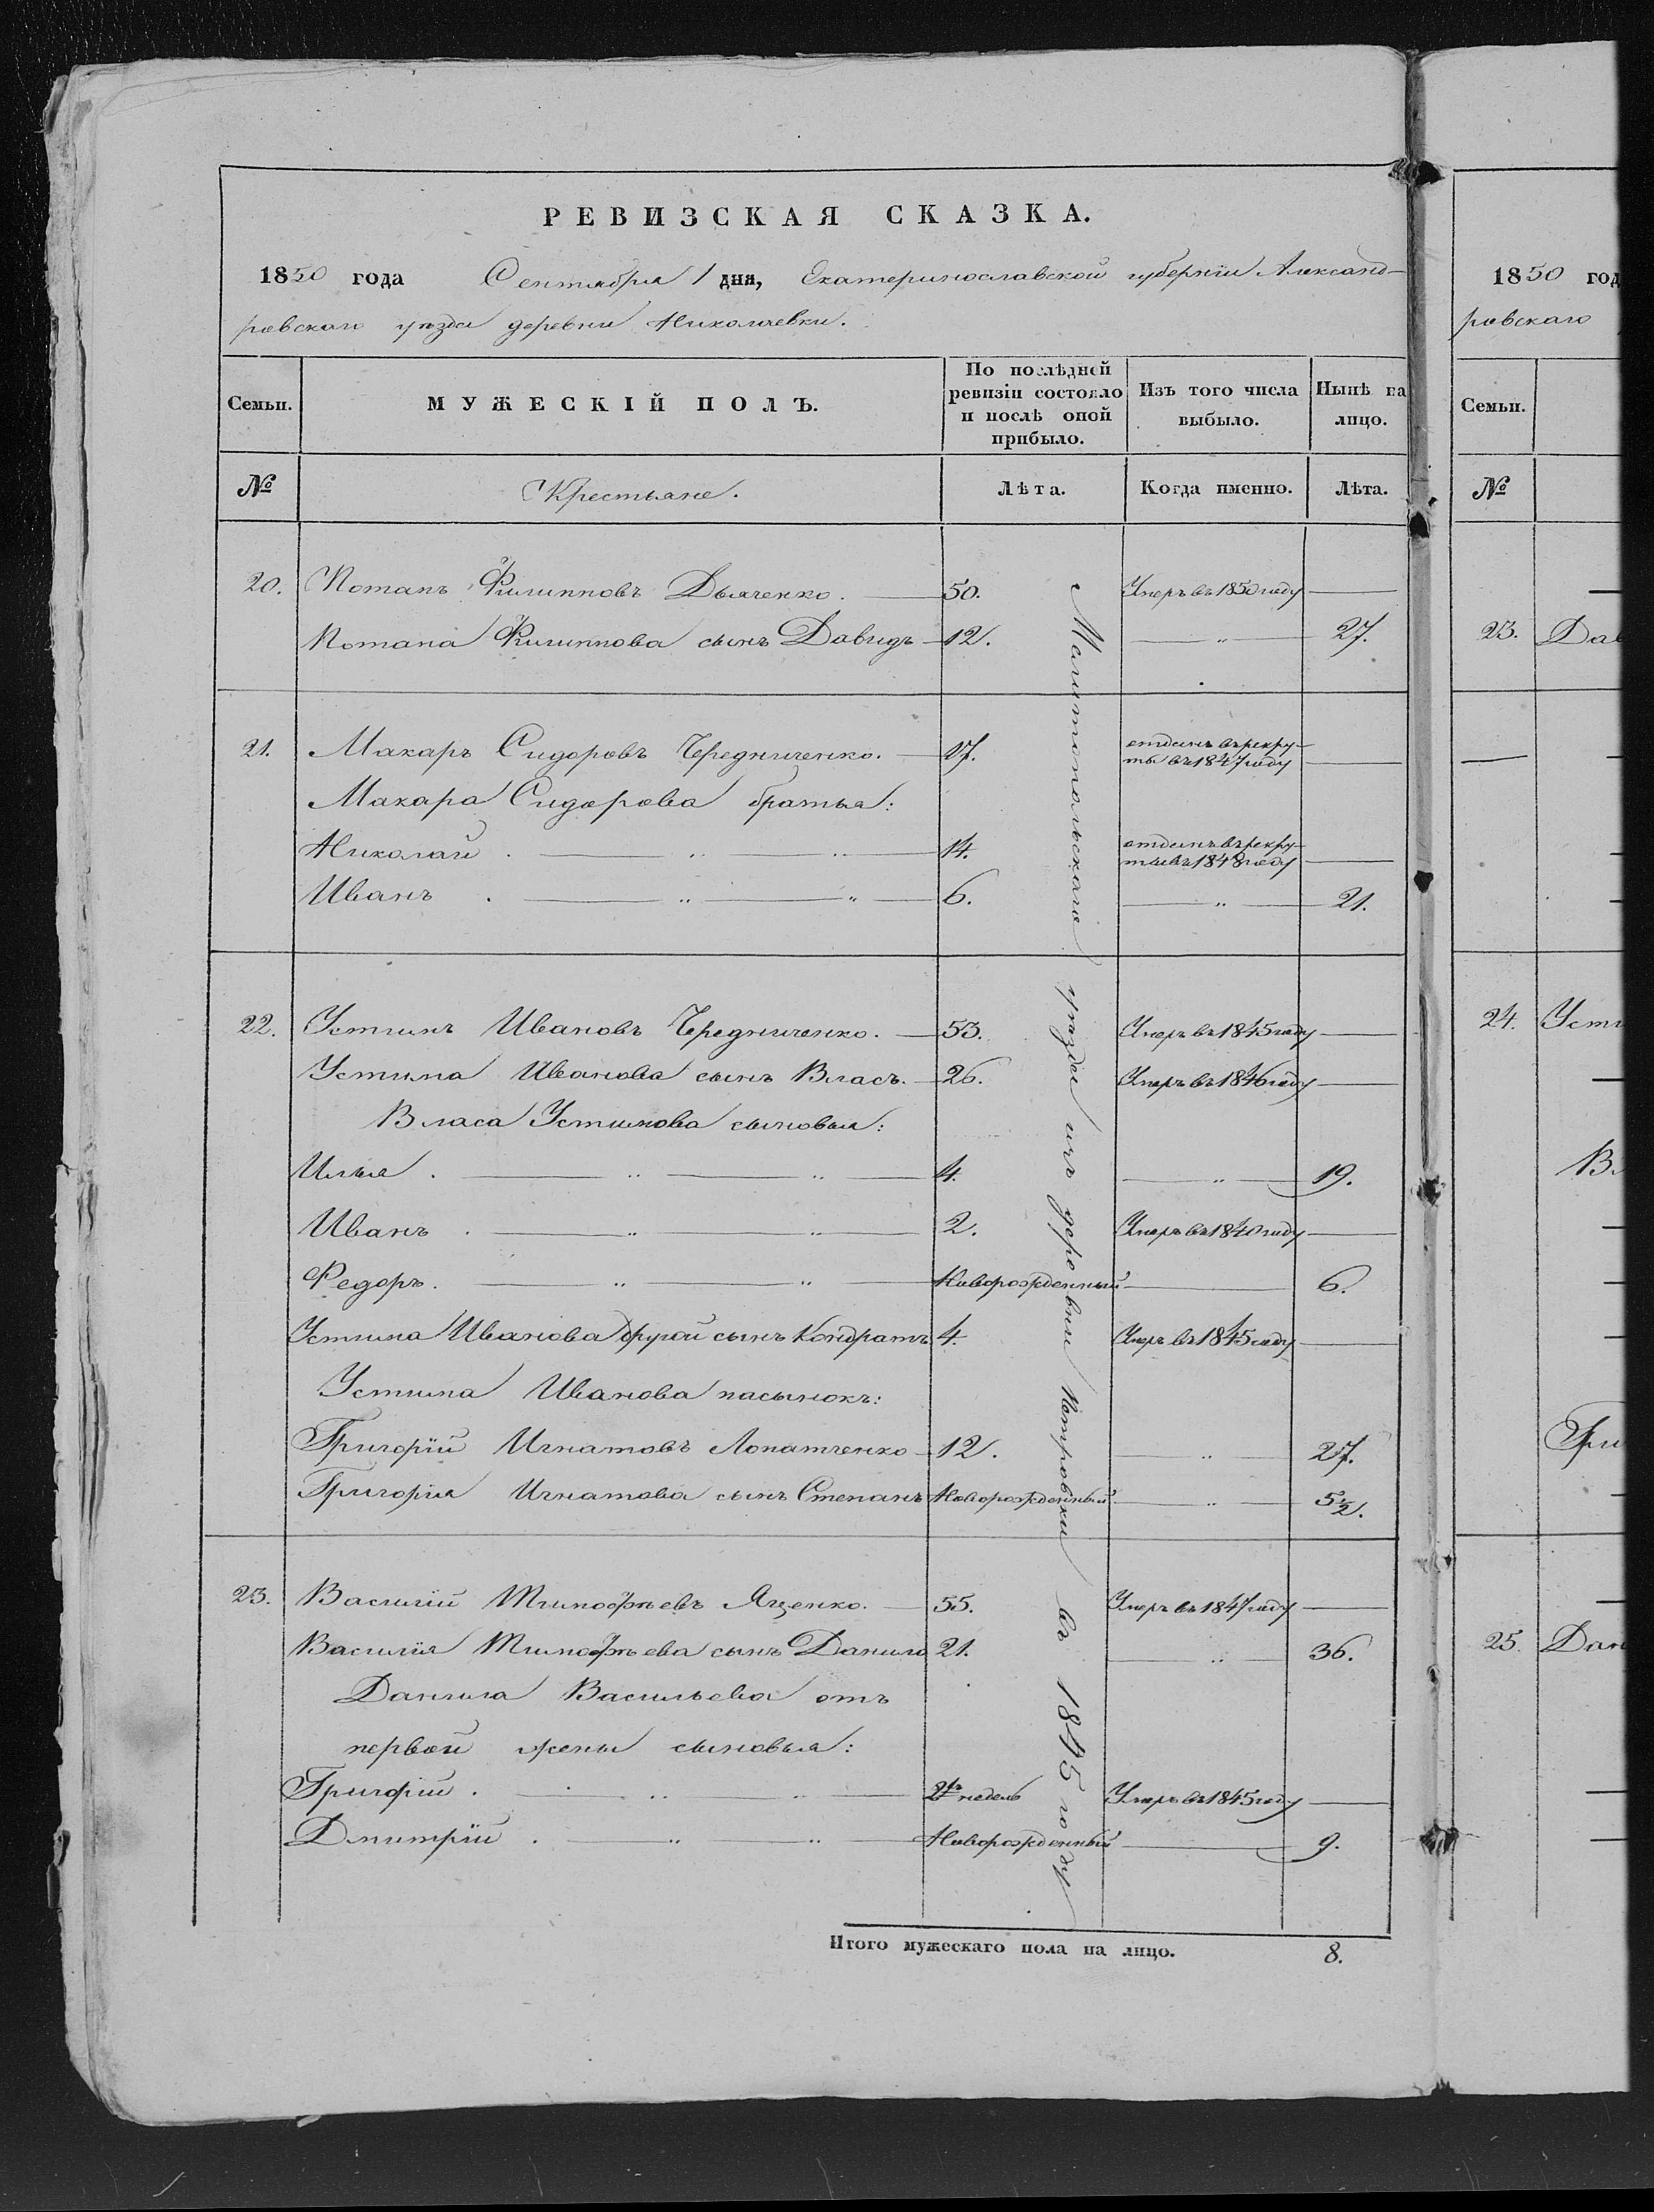 РЕВИЗСКАЯ СКАЗКА.
1850 года Сентября 1 дня, Екатеринославской губерніи Александ-
ровскаго уѣзда деревни Николаевки.
Семьи. МУЖЕСКІЙ ПОЛЪ. По послѣдней ревизіи состояло и послѣ оной прибыло. Изъ того числа выбыло. Нынѣ на лицо.
№ Крестьяне. Лѣта. Когда именно. Лѣта.
20. Потапъ Филипповъ Дьяченко. 50. Умеръ въ 1850 году
Потапа Филиппова сынъ Давидъ 12. 27.
21. Макаръ Сидоровъ Чередниченко. 17. отданъ въ рекру-
ты въ 1847 году
Макара Сидорова братья:
Николай 14. отданъ въ рекру-
ты въ 1848 году
Иванъ 6. 21.
22. Устинъ Ивановъ Чередниченко. 53. Умеръ въ 1845 году
Устина Иванова сынъ Власъ. 26. Умеръ въ 1846 году
Власа Устинова сыновья:
Илья 4. 19.
Иванъ 2. Умеръ въ 1840 году
Федоръ. Новорожденный 6.
Устина Иванова другой сынъ Кондратъ 4. Умеръ въ 1845 году
Устина Иванова пасынокъ:
Григорій Игнатовъ Лопатченко 12. 27.
Григорія Игнатова сынъ Степанъ Новорожденный 5½.
23. Василій Тимофѣевъ Яценко. 55. Умеръ въ 1847 году
Василія Тимофѣева сынъ Данило 21. 36.
Данила Васильева отъ
первой жены сыновья:
Григорій. недель Умеръ въ 1845 году
Дмитрій Новорожденный 9.
Мелитопольскаго уѣзда изъ деревни Петровки въ 1845 году
Итого мужескаго пола на лицо. 8.
1850 год
ровскаго
Семьи.
№
23. Дав
24. Усти
Вл
Гри
25. Дан